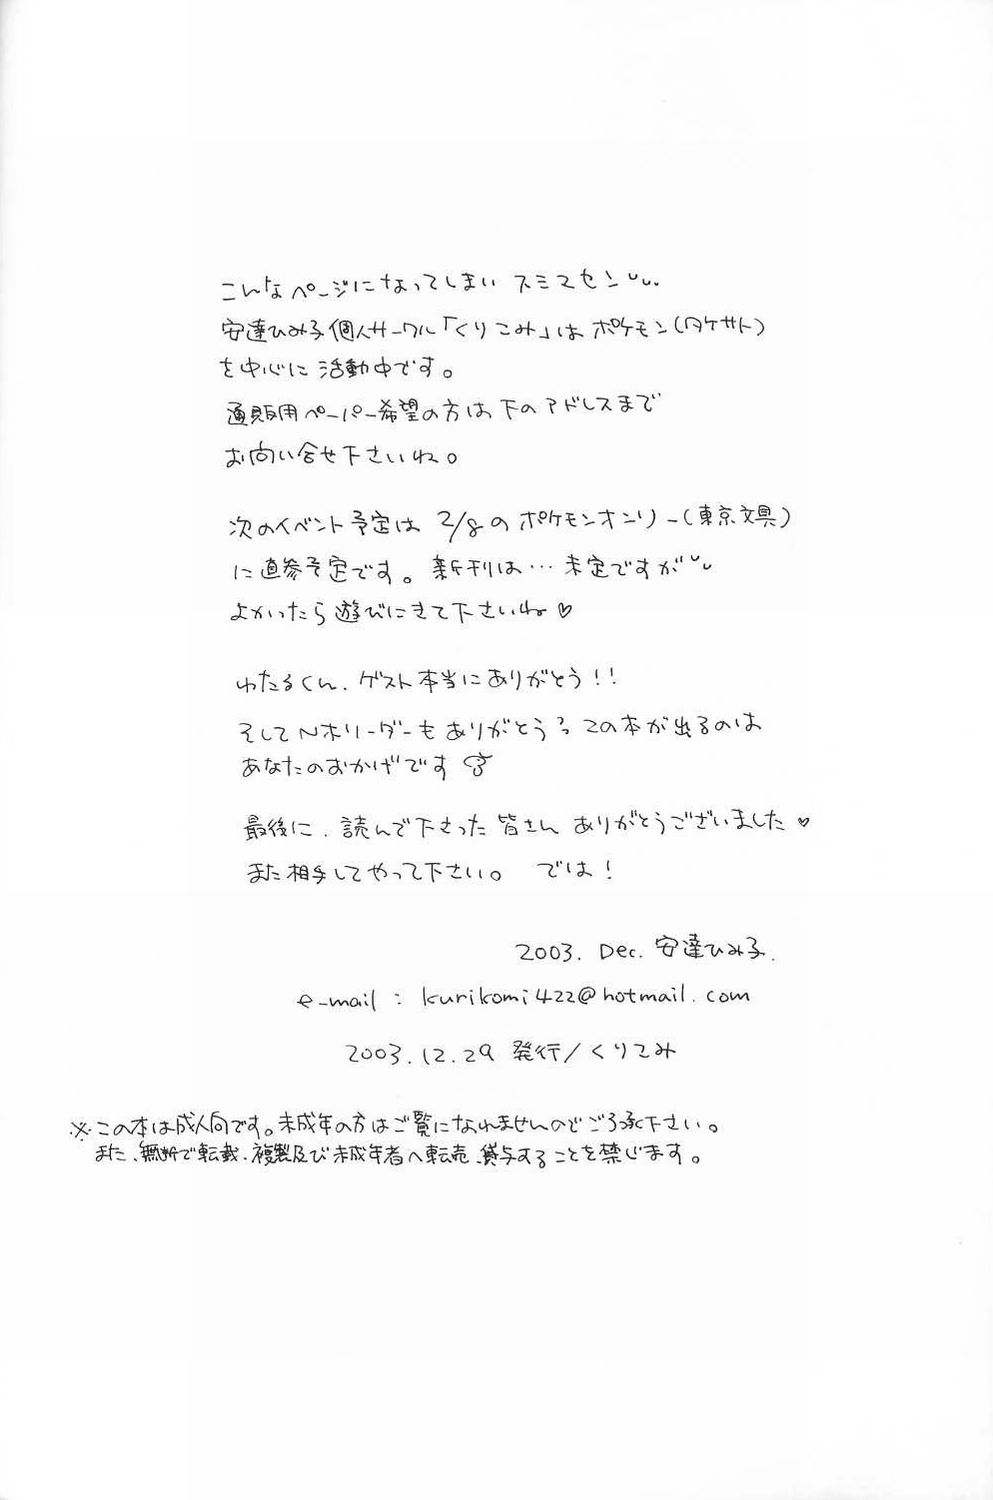 こんなページになってしまい スミマセン
安達ひみ子個人サークル「くりこみ」は ポケモン(タケサト)
を中心に 活動中です。
通販用ペーパー希望の方は下のアドレスまで
お問い合せ下さいね。
次のイベント予定は 2/8の ポケモンオンリー(東京文具)
に直参予定です。新刊は…未定ですが
よかったら遊びにきて下さいね♡
わたるくん、ゲスト本当にありがとう!!
そして Nホリーダーも ありがとう この本が出るのは
あなたのおかげです
最後に、読んで下さった皆さん ありがとうございました♡
また相手してやって下さい。 では!
2003. Dec. 安達ひみ子.
e-mail : kurikomi422@hotmail.com
2003.12.29 発行/くりこみ
※この本は成人向です。未成年の方はご覧になれませんのでご了承下さい。
また、無断で転載、複製及び未成年者へ転売、貸与することを禁じます。